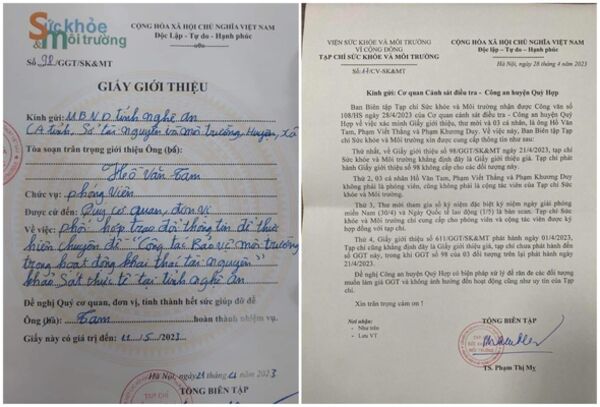 Sức khỏe
& Môi trường
CỘNG HÒA XÃ HỘI CHỦ NGHĨA VIỆT NAM
Độc Lập - Tự do - Hạnh phúc
Số 98/GGT/SK&MT
GIẤY GIỚI THIỆU
Kính gửi: U.B.N.D. tỉnh nghệ an
CA tỉnh, Sở tài nguyên và môi trường, Huyện, xã
Tòa soạn trân trọng giới thiệu Ông (bà):
Hồ Văn Tam
Chức vụ: phóng viên
Được cử đến: Quý cơ quan, đơn vị
Về việc: phối hợp trao đổi thông tin để thực
hiện chuyên đề "Công tác Bảo vệ môi trường
trong hoạt động khai thác tài nguyên"
khảo sát thực tế tại tỉnh nghệ An
Đề nghị Quý cơ quan, đơn vị, tính thành hết sức giúp đỡ để
Ông (bà): Tam hoàn thành nhiệm vụ.
Giấy này có giá trị đến: 15/5-2023
Hà Nội, ngày 21 tháng 4 2023
TỔNG BIÊN TẬP
TẠP CHÍ
VIỆN SỨC KHỎE VÀ MÔI TRƯỜNG
VÌ CỘNG ĐỒNG
TẠP CHÍ SỨC KHỎE VÀ MÔI TRƯỜNG
CỘNG HÒA XÃ HỘI CHỦ NGHĨA VIỆT NAM
Độc lập - Tự do - Hạnh phúc
/CV-SK&MT
Hà Nội, ngày 28 tháng 4 năm 2023
Kính gửi: Cơ quan Cảnh sát điều tra - Công an huyện Quỳ Hợp
Ban Biên tập Tạp chí Sức khỏe và Môi trường nhận được Công văn số
108/HS ngày 28/4/2023 của Cơ quan Cảnh sát điều tra - Công an huyện Quỳ
Hợp về việc xác minh Giấy giới thiệu, thư mời và 03 cá nhân, là ông Hồ Văn
Tam, Phạm Viết Thắng và Phạm Khương Duy. Về việc này, Ban Biên tập Tạp
chí Sức khỏe và Môi trường xin được cung cấp thông tin như sau:
Thứ nhất, về Giấy giới thiệu số 98/GGT/SK&MT ngày 21/4/2023, tạp chí
Sức khỏe và Môi trường khẳng định đây là Giấy giới thiệu giả. Tạp chí phát
hành Giấy giới thiệu số 98 không cấp cho các đối tượng này.
Thứ 2, 03 cá nhân Hồ Văn Tam, Phạm Viết Thắng và Phạm Khương Duy
không phải là phóng viên, cũng không phải là cộng tác viên của Tạp chí Sức
khỏe và Môi trường.
Thứ 3, Thư mời tham gia số kỷ niệm đặc biệt kỷ niệm ngày giải phóng
miền Nam (30/4) và Ngày Quốc tế lao động (1/5) là bản scan. Tạp chí Sức
khỏe và Môi trường chỉ cung cấp cho phóng viên và cộng tác viên được ký
hợp đồng với tạp chí.
Thứ 4, Giấy giới thiệu số 611/GGT/SK&MT phát hành ngày 21/4/2023,
Tạp chí cũng khẳng định đây là Giấy giới thiệu giả, tạp chí chưa phát hành đến
số GGT này, trong khi GGT số 98 của 03 đối tượng trên lại phát hành ngày
21/4/2023.
Đề nghị Công an huyện Quỳ Hợp có biện pháp xử lý để răn đe các đối tượng
muốn làm giả GGT và không ảnh hưởng đến hoạt động cũng như uy tín của Tạp
chí.
Xin trân trọng cảm ơn !
Nơi nhận:
- Như trên
- Lưu VT
TỔNG BIÊN TẬP
TS. Phạm Thị Mỵ